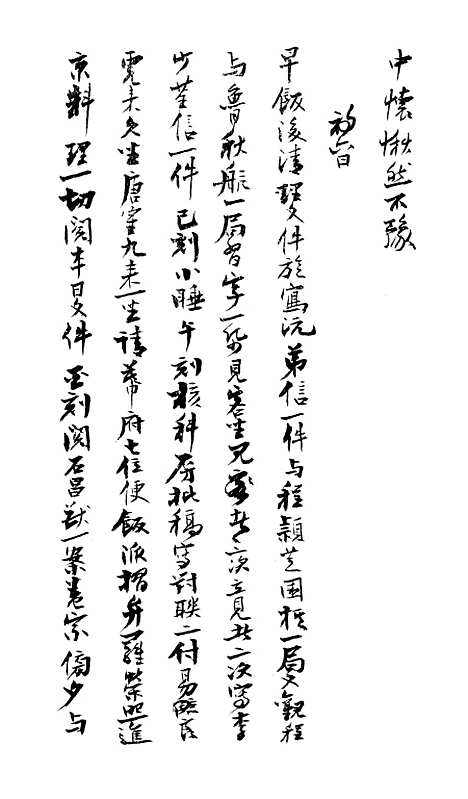 中懷愀然不豫
初六日
早飯後清理文件旋寫沅弟信一件与程穎芝圍棋一局又觀程
与魯秋航一局習字一紙見客坐見者一次立見者二次寫李
少荃信一件巳刻小睡午刻核科房批稿寫對聯二付易
霓来久坐唐室九来一坐請幕府七位便飯派摺弁羅榮照進
京料理一切閱本日文件酉刻閱石昌猷一案卷宗傍夕与